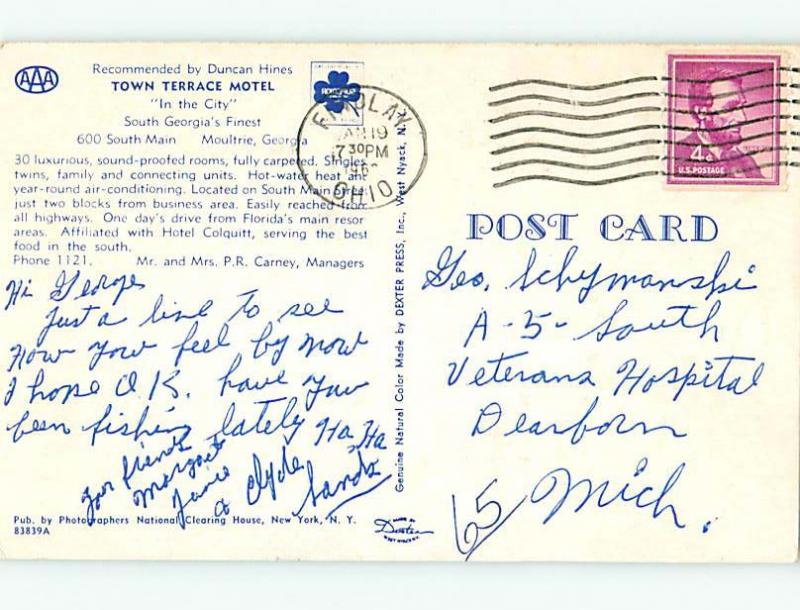 AAA
Recommended by Duncan Hines
TOWN TERRACE MOTEL
"In the City"
South Georgia's Finest
600 South Main Moultrie, Georgia
30 luxurious, sound-proofed rooms, fully carpered. Singles
twins, family and connecting units. Hot-water heat an
year-round air-conditioning. Located on South Main Stree
just two blocks from business area. Easily reached from
all highways. One day's drive from Florida's main resor
areas. Affiliated with Hotel Colquitt, serving the best
food in the south.
Phone 1121. Mr. and Mrs. P.R. Carney, Managers
Hi George
Just a line to see
How your feel by now
I hope O.K. have you
been fishing lately
Ha Ha
your friends
Margaret
Janie
& Clyde
Pub. by Photographers National Clearing House, New York, N. Y.
83839A
Genuine Natural Color Made by DEXTER PRESS, Inc., West Nyack, N.Y.
MADE BY
Dexter
WEST NYACK, N.Y.
FINDLAY
JAN 19
730PM
196
OHIO
4¢
U.S. POSTAGE
POST CARD
Geo. Schymanski
A-5-South
Veterans Hospital
Dearborn
Mich.
65